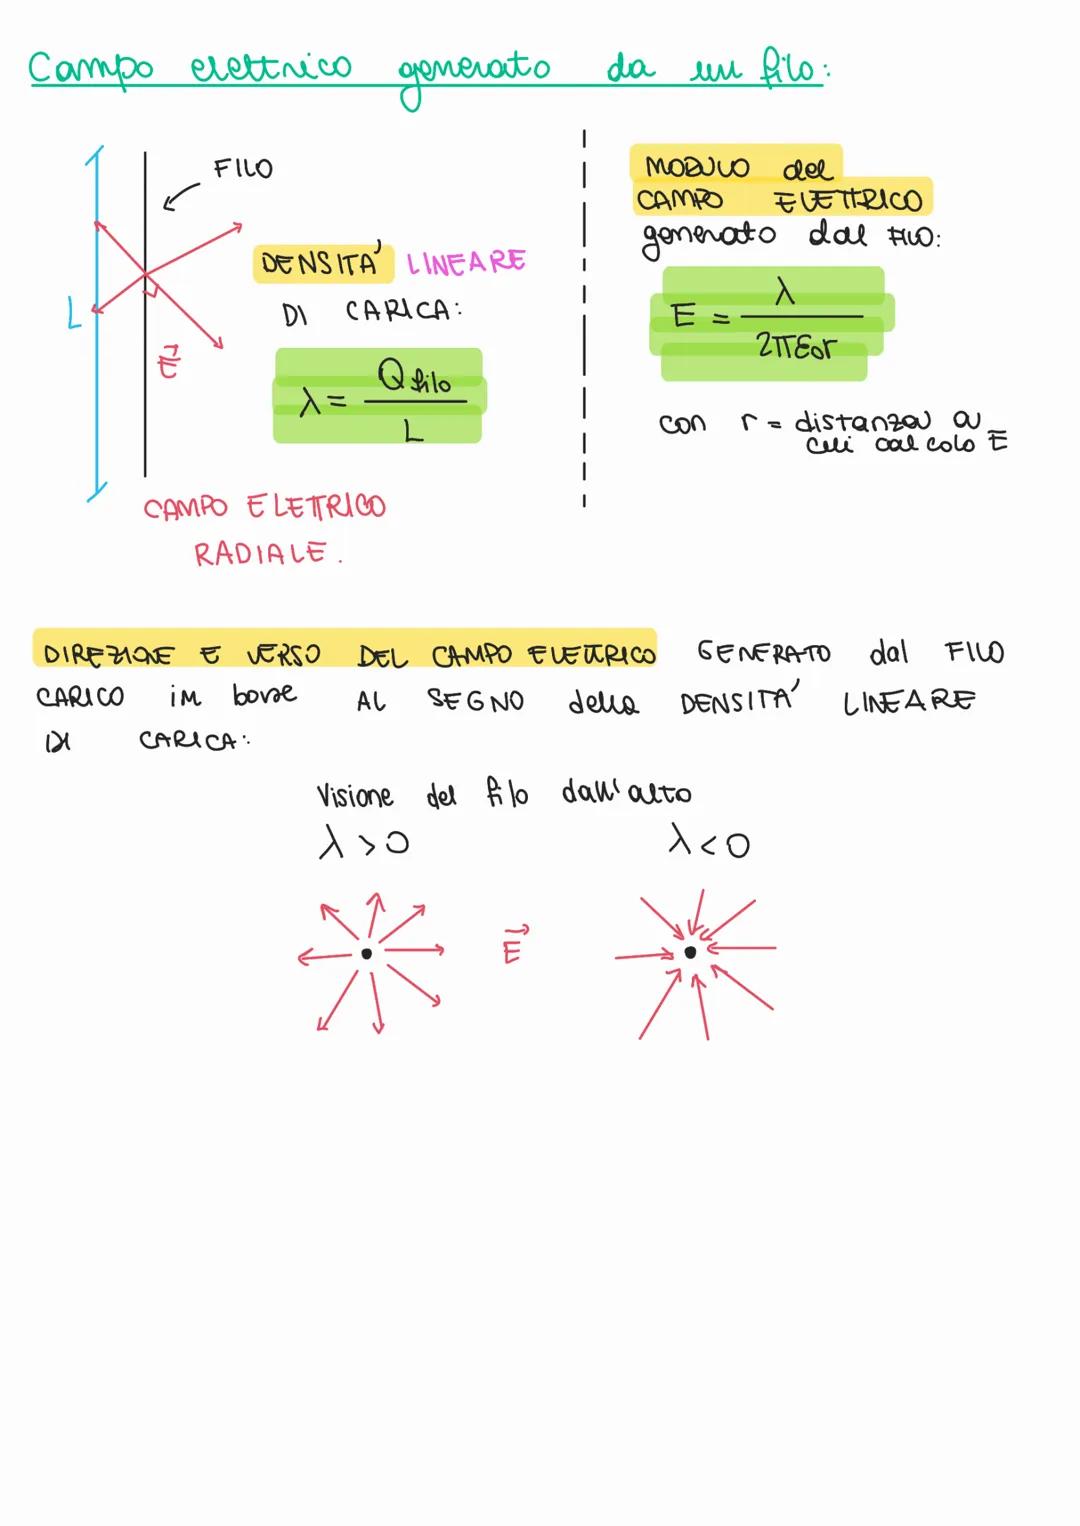 Campo elettrico generato da un filo:
FILO
DENSITA' LINEARE
DI CARICA:
L
E
λ = Q filo / L
CAMPO ELETTRICO
RADIALE.
MODULO del
CAMPO ELETTRICO
generato dal FILO:
E = λ / 2πε₀r
con r = distanza a
cui calcolo E
DIREZIONE E VERSO DEL CAMPO ELETTRICO GENERATO dal FILO
CARICO in base AL SEGNO della DENSITA' LINEARE
DI CARICA:
Visione del filo dall'alto
λ > 0 λ < 0
E